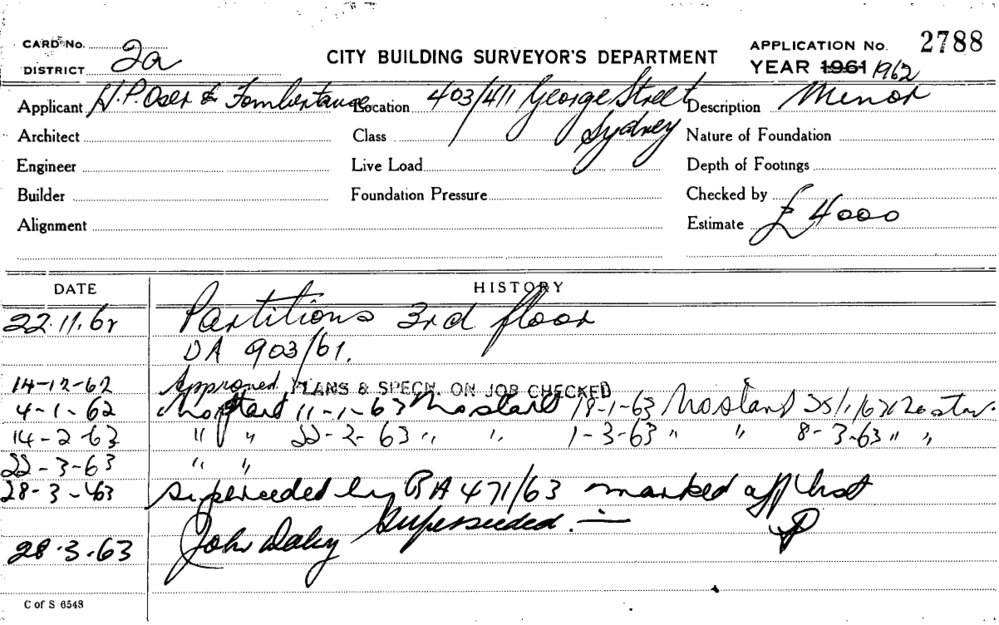 CARD No.
DISTRICT 2a
CITY BUILDING SURVEYOR'S DEPARTMENT
APPLICATION No. 2788
YEAR 1961 1962
Applicant H.P. Oser & Fombertaux Location 403/411 George Street Sydney Description Minor
Architect Class Nature of Foundation
Engineer Live Load Depth of Footings
Builder Foundation Pressure Checked by
Alignment Estimate £4000
DATE HISTORY
22.11.62 Partitions 3rd floor
DA 903/61.
14-12-62 Approved PLANS & SPECN. ON JOB CHECKED
4-1-62 No start 11-1-63 No start 18-1-63 No start 25/1/63 No star.
14-2-63 " " 22-2-63 " " 1-3-63 " " 8-3-63 " "
22-3-63 " "
28-3-63 Superceeded by BA 471/63 marked off list
Superseeded.
28.3.63 John Daley
C of S 6548